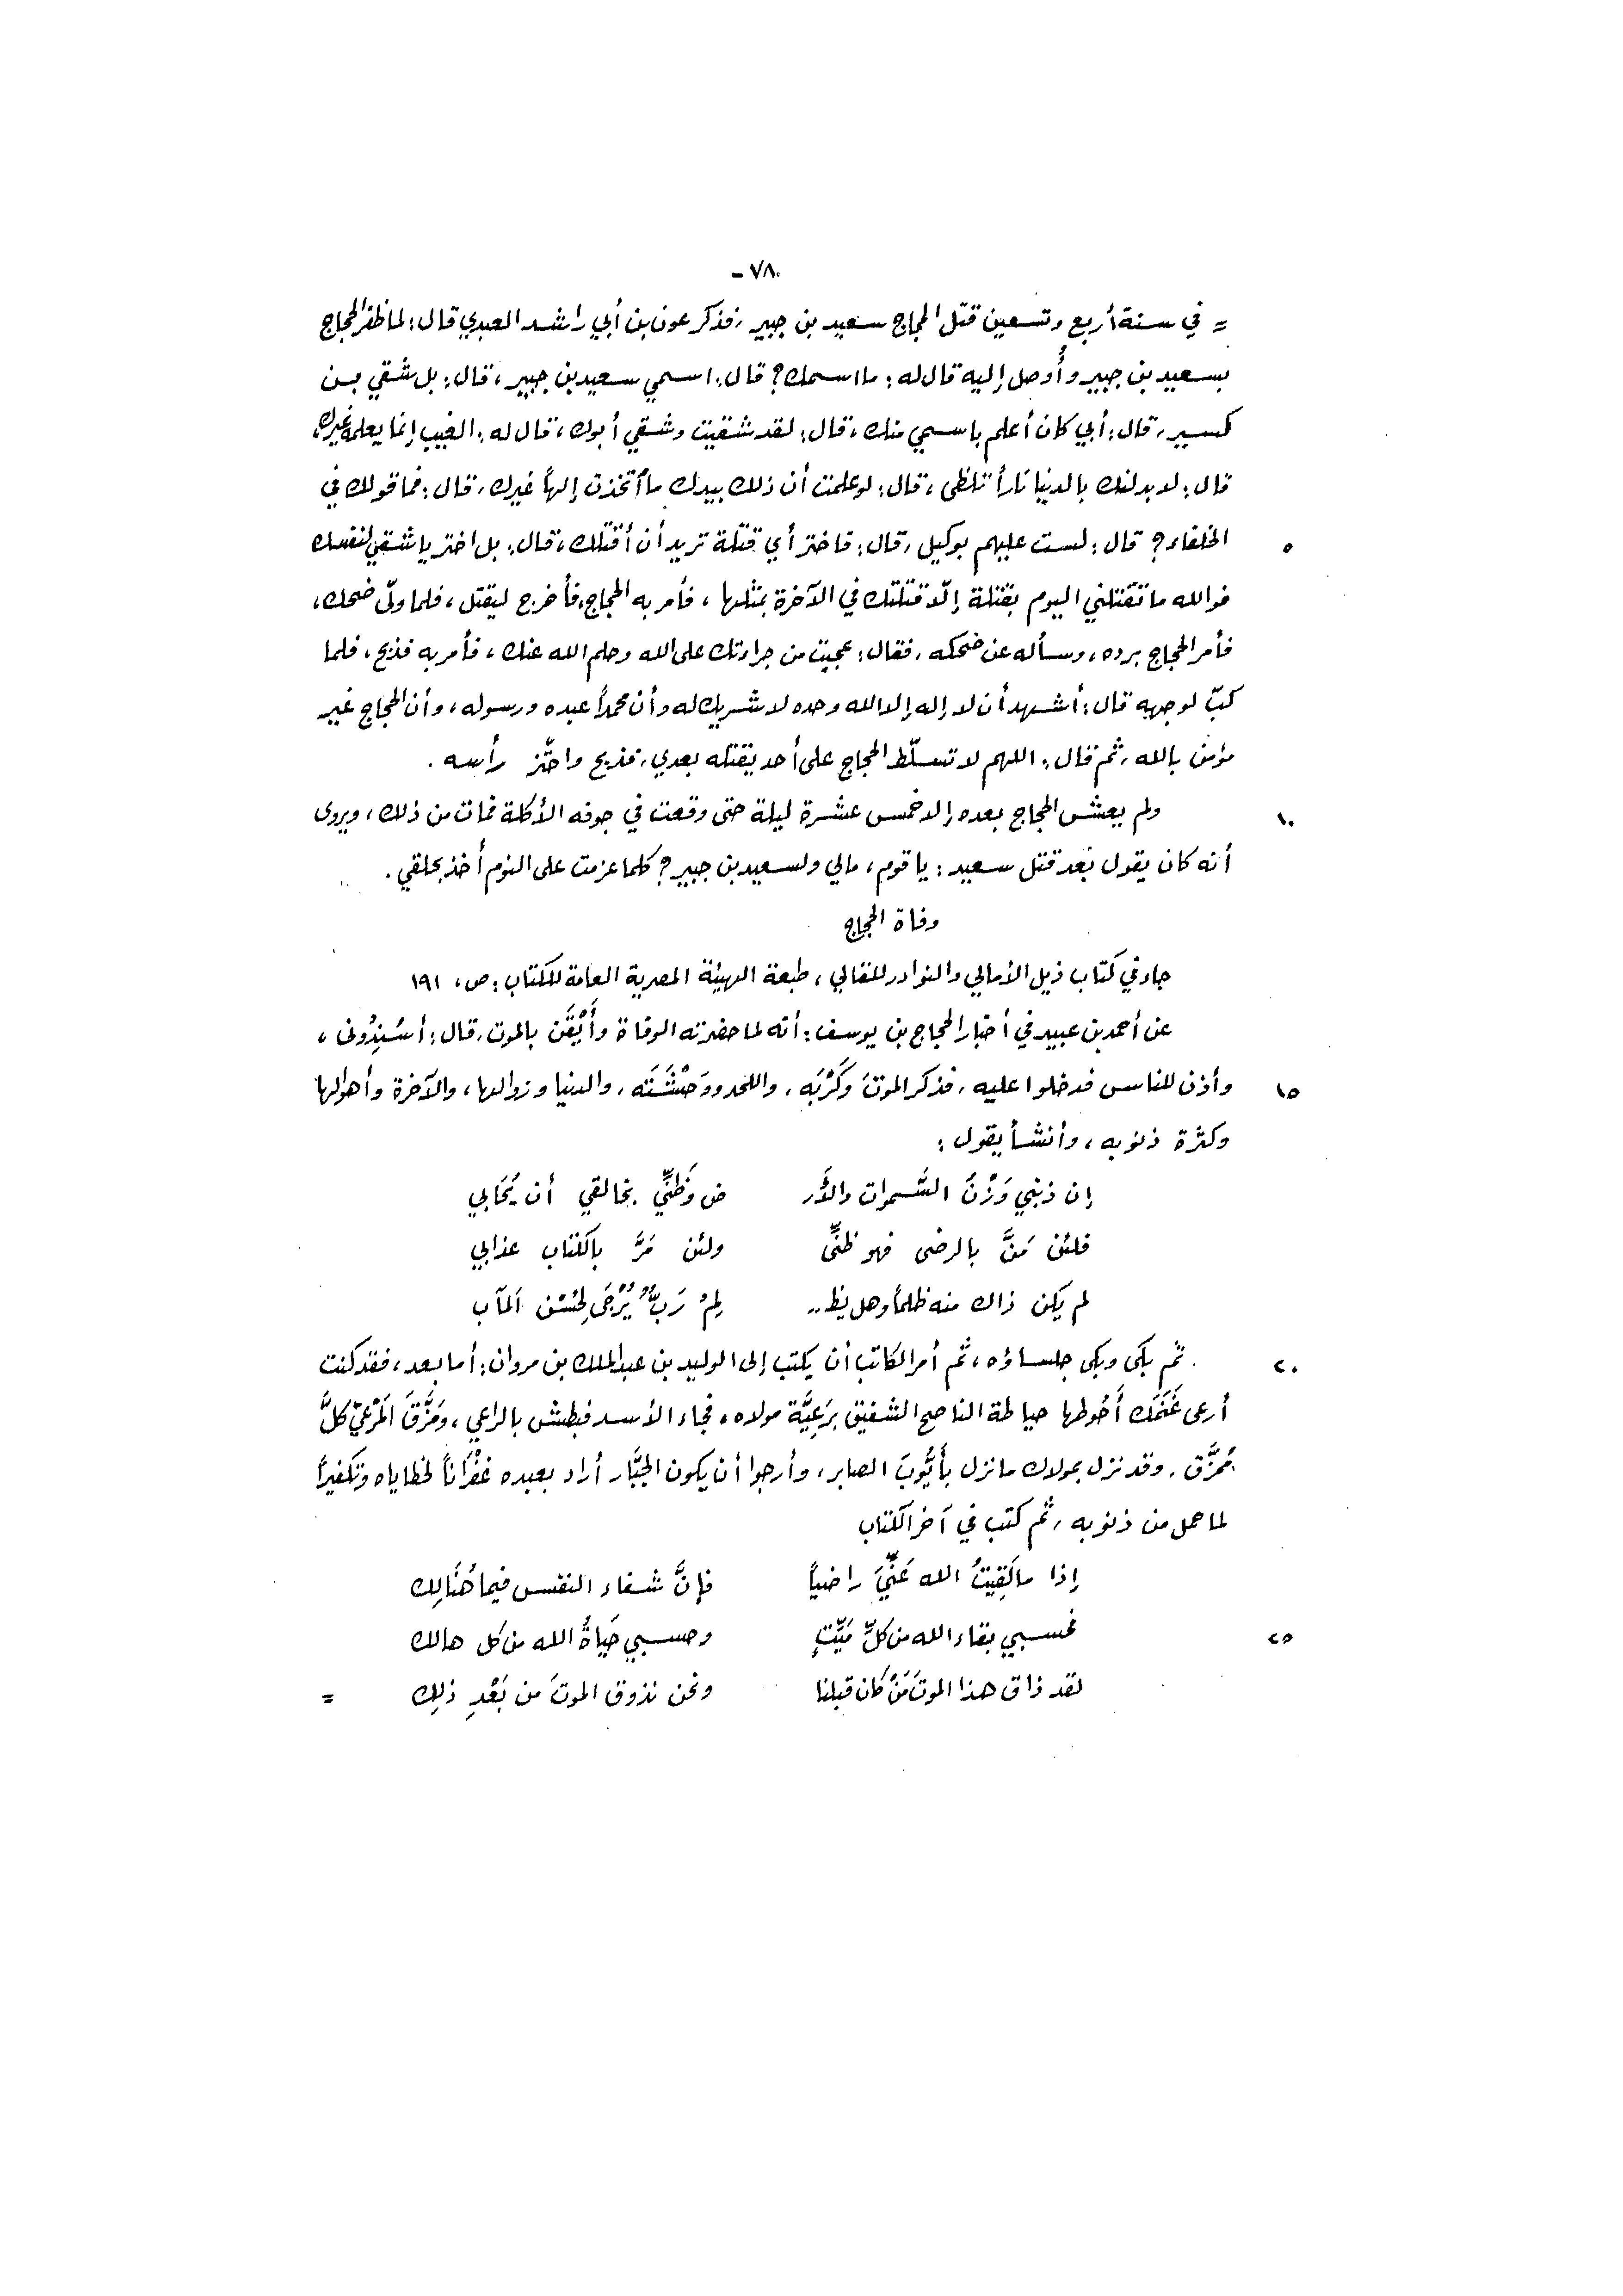 ٧٨٠ -
= في سنة أربع وتسعين قتل الحجاج سعيد بن جبير، فذكر عون بن أبي راشد العبدي قال: لما ظفر الحجاج
بسعيد بن جبير وأُوصل إليه قال له: ما اسمك؟ قال: اسمي سعيد بن جبير، قال: بل شقي بن
كسير، قال: أبي كان أعلم باسمي منك، قال: لقد شقيت وشقي أبوك، قال له: الغيب إنما يعلمه غيرك،
قال: لأبدلنك بالدنيا ناراً تلظى، قال: لو علمت أن ذلك بيدك ما أتخذت إلهاً غيرك، قال: فما قولك في
٥ الخلفاء؟ قال: لست عليهم بوكيل، قال: فاختر أي قتلة تريد أن أقتلك، قال: بل اختر يا شقي لنفسك
فوالله ما تقتلني اليوم بقتلة إلّا قتلتك في الآخرة بمثلها، فأمر به الحجاج، فأخرج ليقتل، فلما ولّى ضحك،
فأمر الحجاج برده، وسأله عن ضحكه، فقال: عجبت من جراءتك على الله وحلم الله عنك، فأمر به فذبح، فلما
كبّ لوجهه قال: أشهد أن لا إله إلا الله وحده لا شريك له وأن محمداً عبده ورسوله، وأن الحجاج غير
مؤمن بالله، ثم قال: اللهم لا تسلّط الحجاج على أحد يقتله بعدي، فذبح واحتّز رأسه.
١٠ ولم يعش الحجاج بعده إلا خمس عشرة ليلة حتى وقعت في جوفه الأكلة فمات من ذلك، ويروى
أنه كان يقول بعد قتل سعيد: يا قوم، مالي ولسعيد بن جبير؟ كلما عزمت على النوم أخذ بحلقي.
وفاة الحجاج
جاء في كتاب ذيل الأمالي والنوادر للقالي، طبعة الهيئة المصرية العامة للكتاب: ص، ١٩١
عن أحمد بن عبيد في أخبار الحجاج بن يوسف: أنه لما حضرته الوفاة وأَيْقَن بالموت، قال: أسْنِدُونى،
١٥ وأذن للناس فدخلوا عليه، فذكر الموتَ وكَرْبَه، واللحد ووَحْشَتَه، والدنيا وزوالها، والآخرة وأهوالها
وكثرة ذنوبه، وأنشأ يقول:
إن ذنبي وَزْنُ السَّموات والأَر ض وظَنِّي بخالقي أن يُحَابي
فلئن مَنَّ بالرضى فهو ظنِّى ولئن مَرَّ بالكتاب عذابي
لم يكن ذاك منه ظلماً وهل يظـ.. لِمُ رَبٌّ يُرْجَى لِحُسْن المآب
٢٠ ثم بكى وبكى جلساؤه، ثم أمر الكاتب أن يكتب إلى الوليد بن عبد الملك بن مروان: أما بعد، فقد كنت
أرعى غَنَمَك أَحُوطها حياطة الناصح الشفيق برَعِيَّة مولاه، فجاء الأسد فبطش بالراعي، ومَزَّقَ المَرْعِيّ كلَّ
مُمَزَّق، وقد نزل بمولاك ما نزل بأَيُّوبَ الصابر، وأرجوا أن يكون الجبَّار أراد بعبده غُفْرَاناً لخطاياه وتكفيراً
لما حمل من ذنوبه، ثم كتب في آخر الكتاب
إذا ما لَقِيتُ الله عَنِّيَ راضياً فإنَّ شفاء النفس فيما هُنَالِك
٢٥ فحسبي بقاء الله من كلِّ مَيِّتٍ وحسبي حَيَاةُ الله من كل هالك
لقد ذاق هذا الموتَ مَنْ كان قبلنا ونحن نذوق الموتَ من بَعْدِ ذلِك =